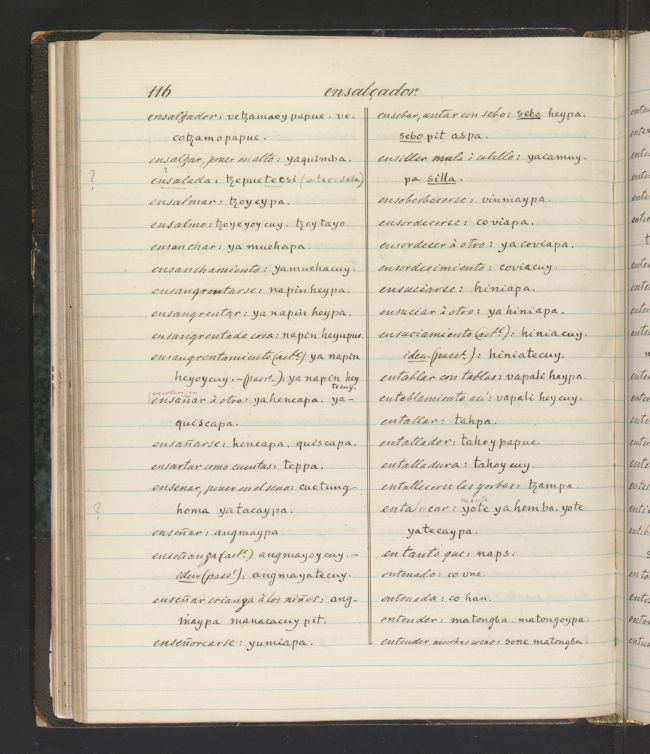 116 ensalçador
ensalçador: vetzamaoy papue. ve-
cotzamo papue.
ensalzar, poner en alto: yaquimba.
? ensalada: tzepuetecsi
ensalmar: tzoyeypa.
ensalmo: tzoyeyoycuy. tzoytayo.
ensanchar: ya muchapa.
ensanchamiento: yamuchacuy.
ensangrentarse: napin heypa.
ensangrentar: ya napin heypa.
ensangrentada cosa: napin heyupue.
ensangrentamiento (act.e) ya napin
heyoycuy. - (pass.e): ya napin hey
tecuy.
ensañar à otro: yaheneapa. ya-
quiscapa.
ensañarse: heneapa. quiscapa.
ensartar como cuentas: teppa.
ensenar, poner en el seno: cuctung-
? homa yatacaypa.
enseñar: angmaypa.
enseñanza (act.e) angmayoycuy. -
idem (pass.e): angmayatecuy.
enseñar crianza à los niños: ang-
maypa manacacuy pit.
enseñorearse: yumiapa.
ensebar, untar con sebo: sebo heypa.
sebo pit aspa.
ensillar mula ò caballo: yacamuy-
pa silla.
ensoberbecerse: vinmaypa.
ensordecerse: coviapa.
ensordecer à otro: ya coviapa.
ensordecimiento: coviacuy.
ensuciarse: hiniapa.
ensuciar à otro: ya hiniapa.
ensuciamiento (act.e): hiniacuy.
idem (pass.e): hiniatecuy.
entablar con tablas: vapali heypa.
entablamiento asi: vapali heycuy.
entallar: tahpa.
entallador: tahoy papue.
entalladura: tahoycuy.
entallecerse las yerbas: tzampa.
manta
yote yahemba. yote
yatecaypa.
en tanto que: naps.
entenado: co vne.
entenada: co han.
entender: matongba. matongoypa.
entender muchas cosas: sone matongba.